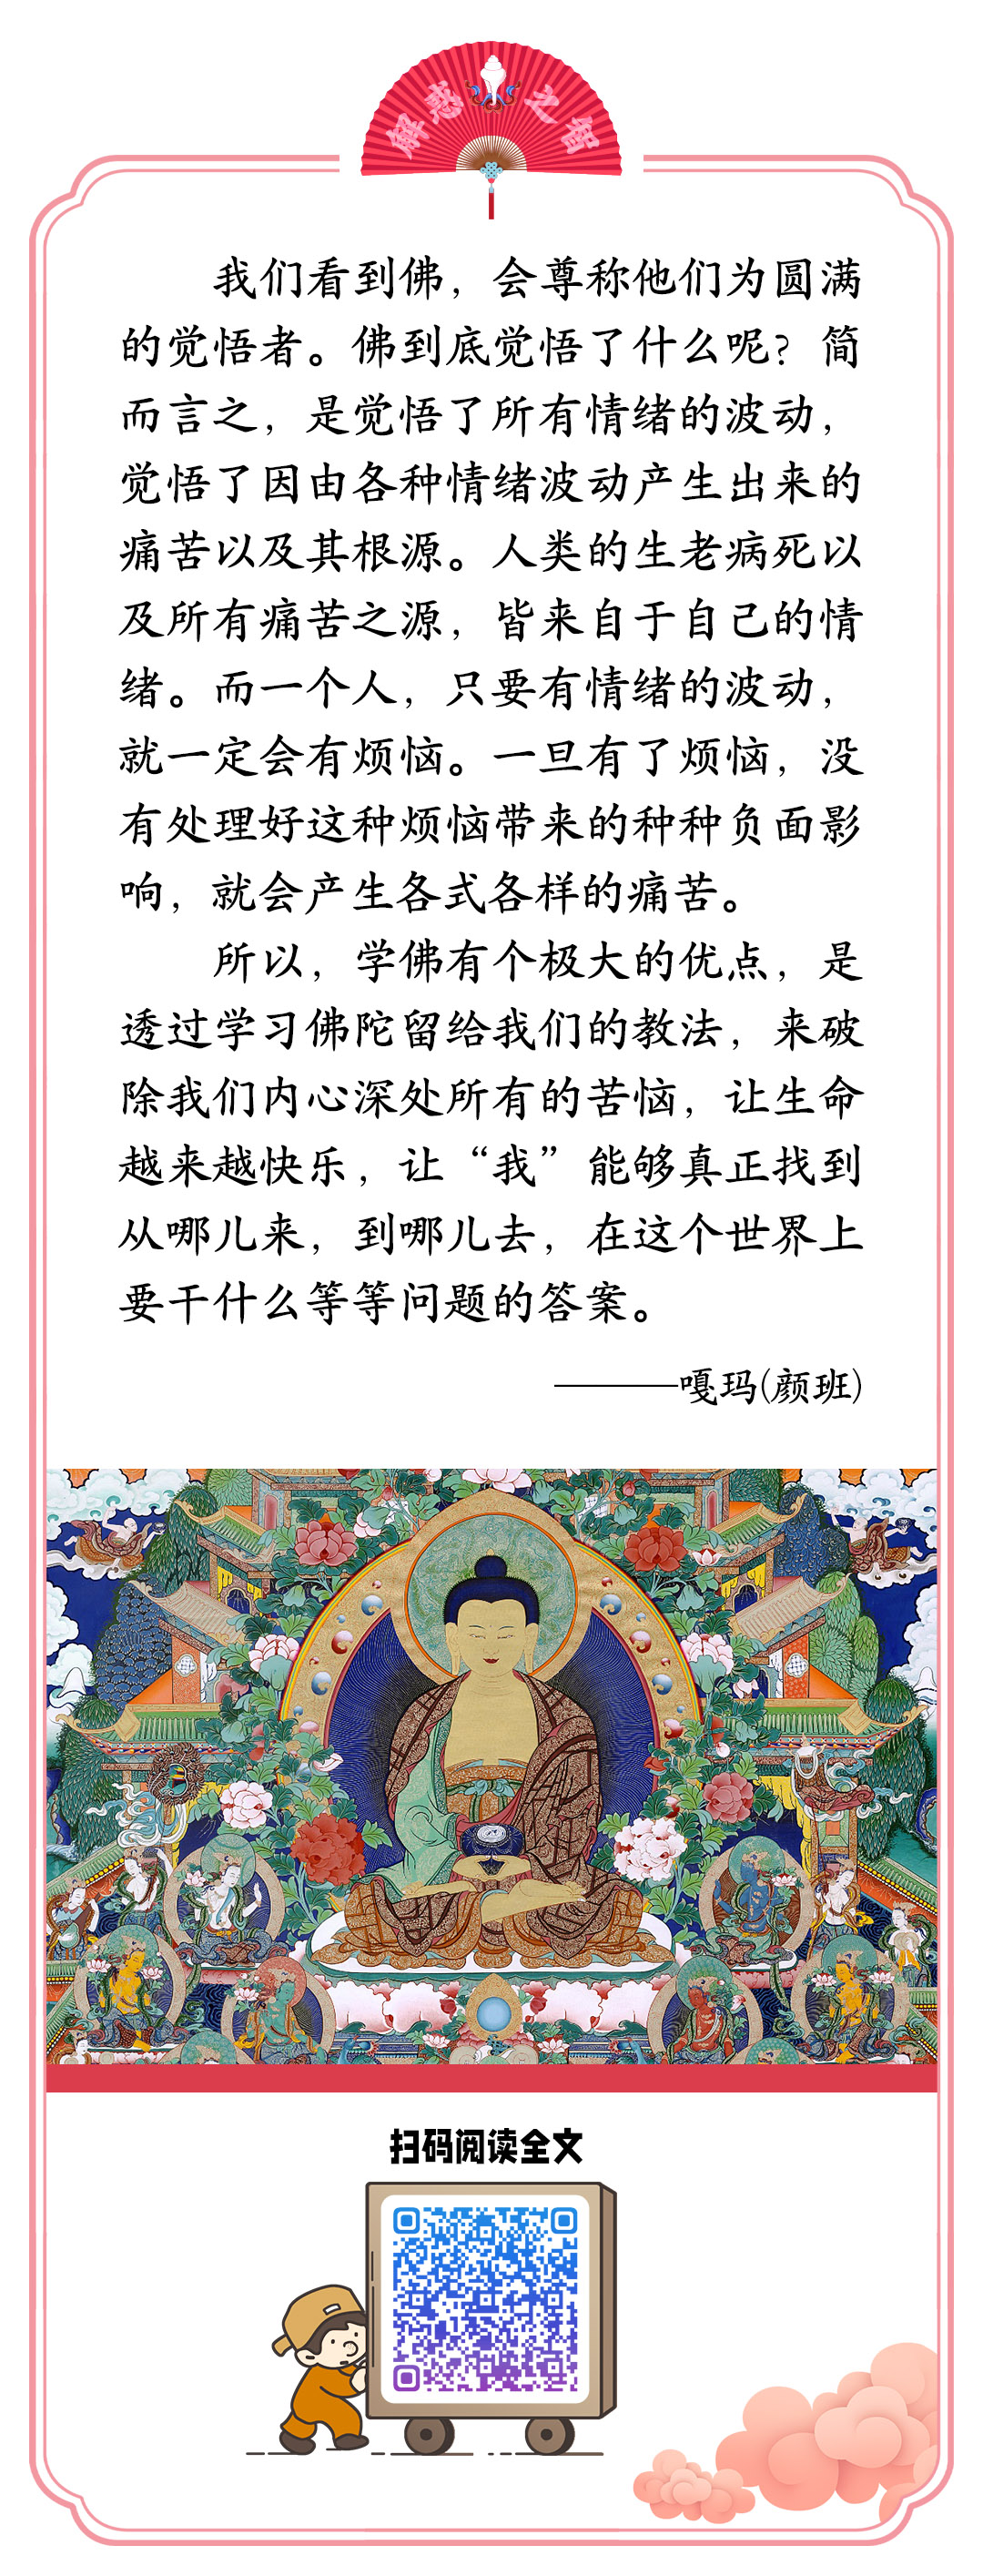 解惑之智
我们看到佛，会尊称他们为圆满
的觉悟者。佛到底觉悟了什么呢？简
而言之，是觉悟了所有情绪的波动，
觉悟了因由各种情绪波动产生出来的
痛苦以及其根源。人类的生老病死以
及所有痛苦之源，皆来自于自己的情
绪。而一个人，只要有情绪的波动，
就一定会有烦恼。一旦有了烦恼，没
有处理好这种烦恼带来的种种负面影
响，就会产生各式各样的痛苦。
所以，学佛有个极大的优点，是
透过学习佛陀留给我们的教法，来破
除我们内心深处所有的苦恼，让生命
越来越快乐，让“我”能够真正找到
从哪儿来，到哪儿去，在这个世界上
要干什么等等问题的答案。
———嘎玛(颜班)
扫码阅读全文